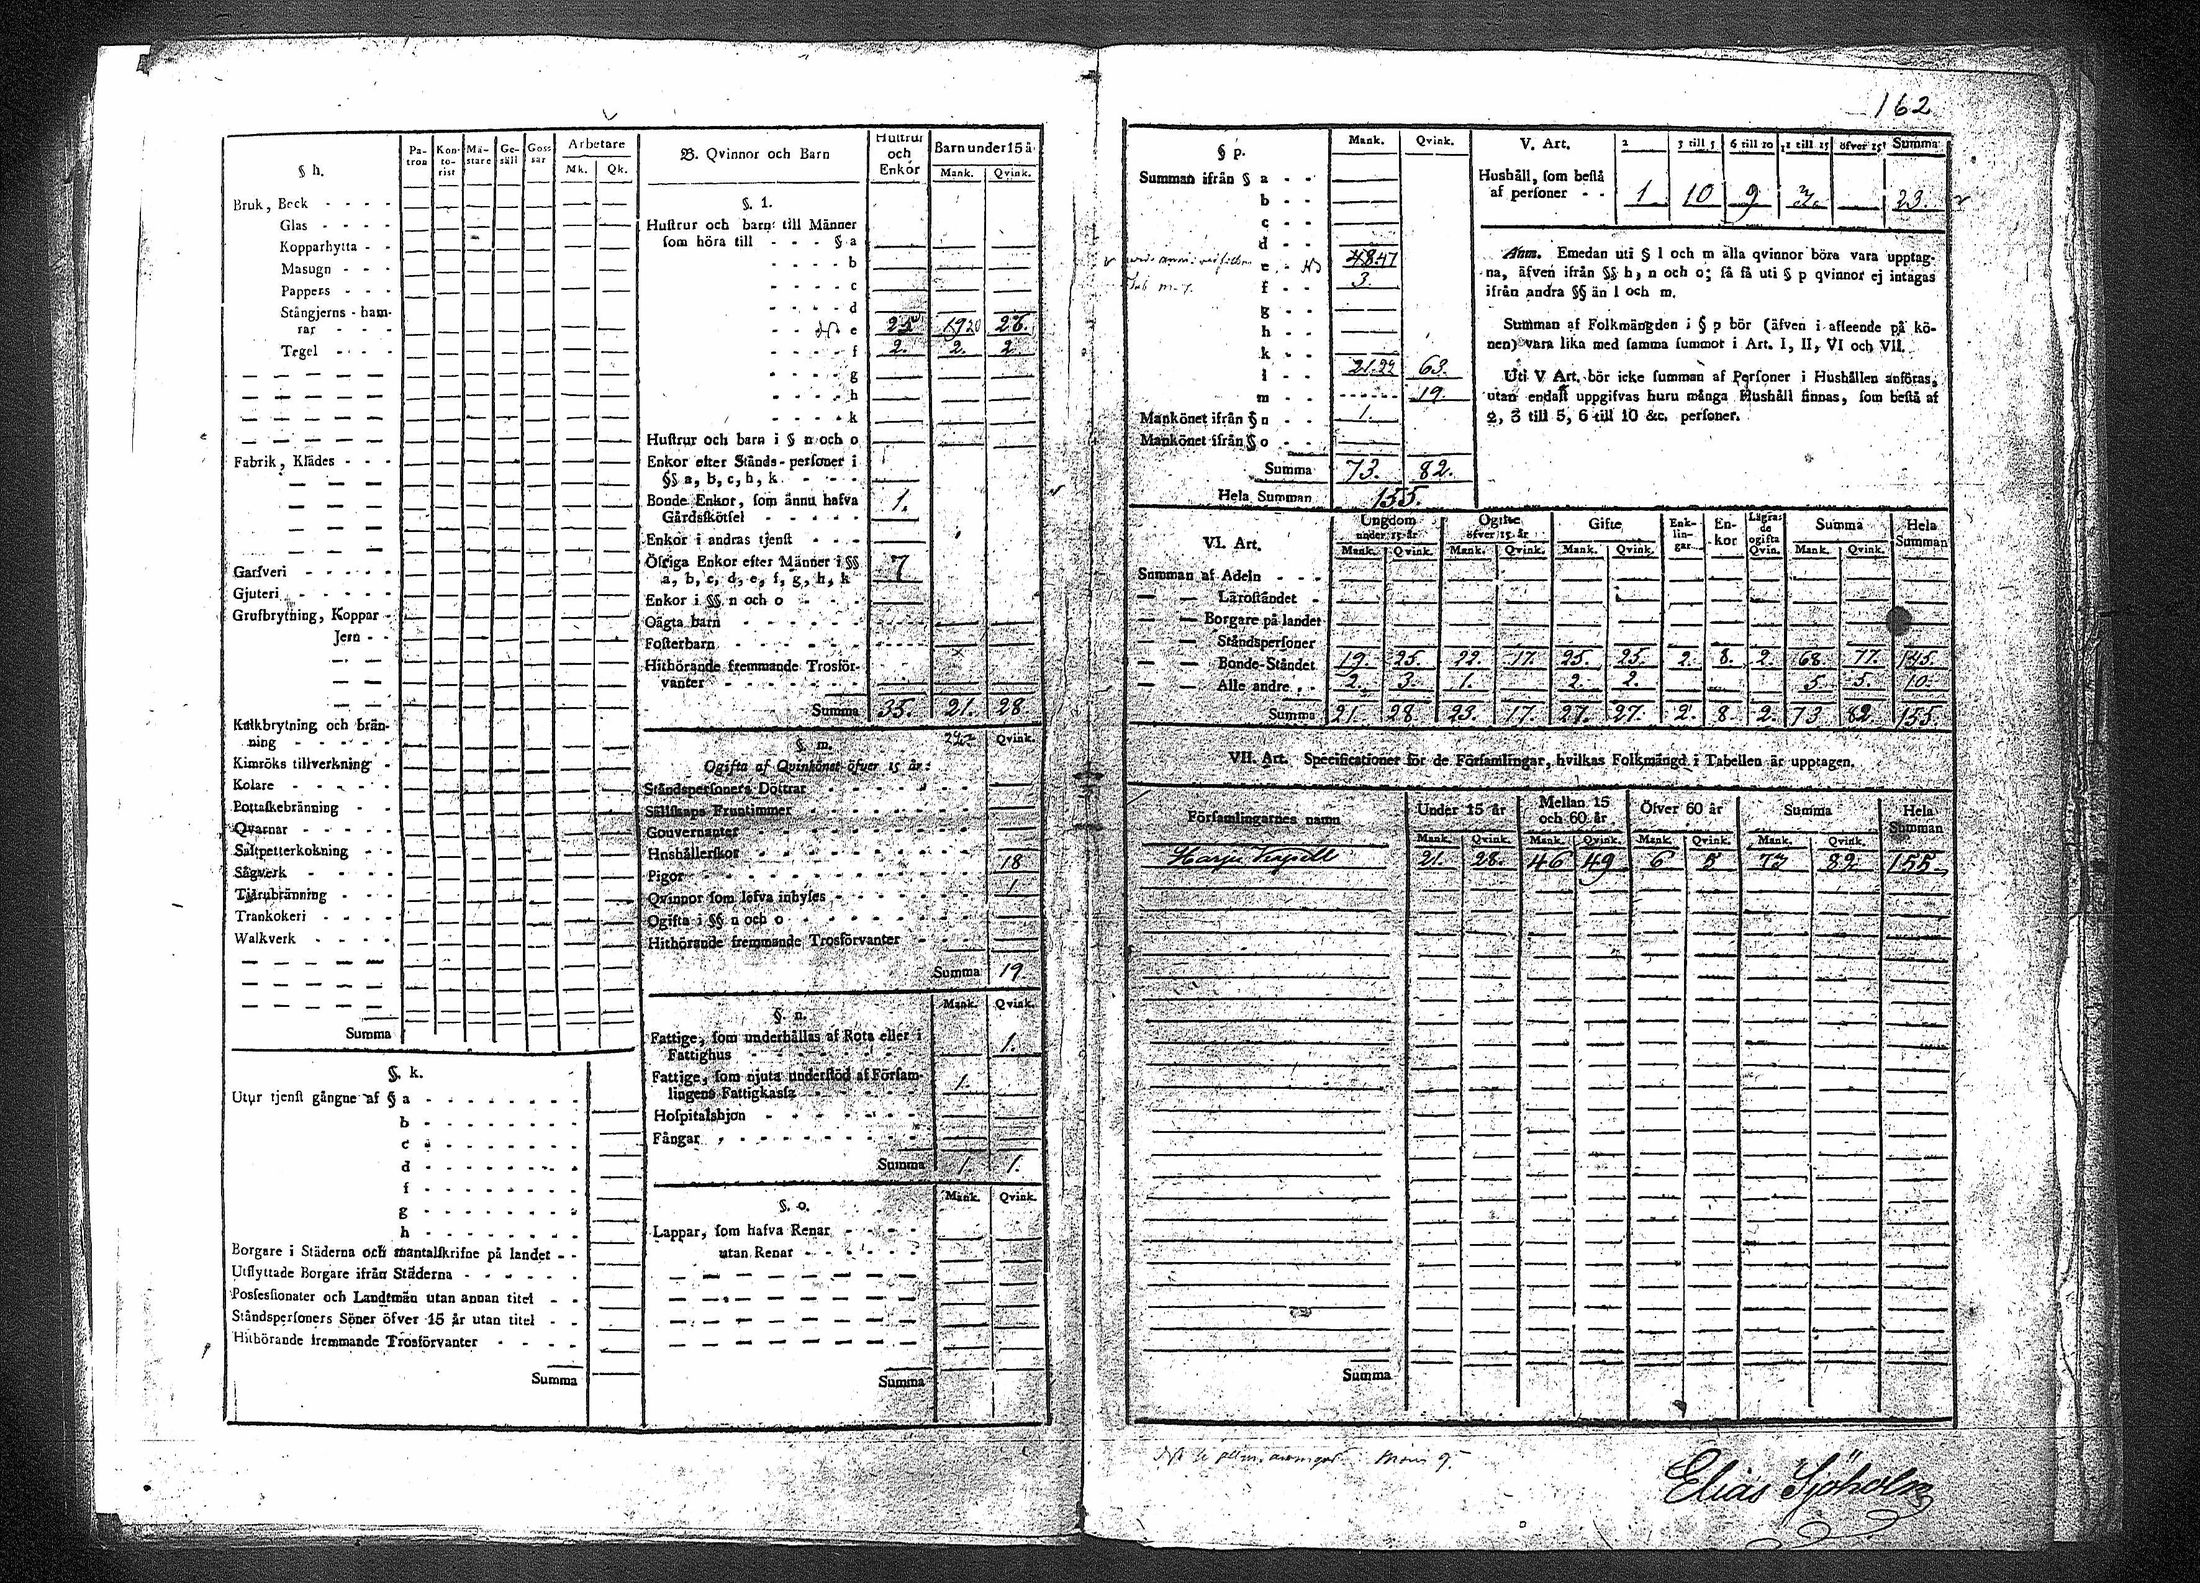 162
§ h.
Pa-tron Kon-to-rist Mä-stare Ge-säll Gos-sar Arbetare
Mk. Qk.
Bruk, Beck - - - -
Glas - - - -
Kopparhytta - -
Masugn - - -
Pappers - - -
Stångjerns-ham-
rar - - -
Tegel - - - -
Fabrik, Klädes - - -
Garfveri - - - - -
Gjuteri - - - - -
Grufbrytning, Koppar -
Jern - -
Kalkbrytning och brän-
ning - - - - -
Kimröks tillverkning -
Kolare - - - - -
Pottaskebränning - -
Qvarnar - - - - -
Saltpetterkokning - -
Sågverk - - - - -
Tjärubränning - - -
Trankokeri - - - -
Walkverk - - - -
Summa
§. k.
Utur tjenst gångne af § a - - - - - - -
b - - - - - - -
c - - - - - - -
d - - - - - - -
f - - - - - - -
g - - - - - - -
h - - - - - - -
Borgare i Städerna och mantalskrifne på landet - -
Utflyttade Borgare ifrån Städerna - - - - - -
Possessionater och Landtmän utan annan titel - -
Ståndspersoners Söner öfver 15 år utan titel - -
Hithörande fremmande Trosförvanter - - - -
Summa
B. Qvinnor och Barn
Hustrur och Enkor Barn under 15 å
Mank. Qvink.
§. 1.
Hustrur och barn till Männer
som höra till - - - § a
- - - - b
- - - - c
- - - - d
e 25 1920 26
- - - - f 2. 2. 2
- - - - g
- - - - h
- - - - k
Hustrur och barn i § n och o
Enkor efter Stånds-personer i
§§ a, b, c, h, k - - - -
Bonde Enkor, som ännu hafva
Gårdsskötsel - - - - - 1.
Enkor i andras tjenst - - -
Öfriga Enkor efter Männer i §§
a, b, c, d, e, f, g, h, k 7
Enkor i §§ n och o - - - -
Oägta barn - - - - - - -
Fosterbarn - - - - - - -
Hithörande fremmande Trosför-
vanter - - - - - - -
Summa 35. 21. 28.
§. m. Qvink.
Ogifta af Qvinkönet öfver 15 år:
Ståndspersoners Döttrar - - - - - -
Sällskaps Fruntimmer - - - - - -
Gouvernanter - - - - - - - -
Hushållerskor - - - - - - - -
Pigor - - - - - - - - - 18
Qvinnor som lefva inhyses - - - - - 1
Ogifta i §§ n och o - - - - - - -
Hithörande fremmande Trosförvanter - - -
Summa 19
§. n. Mank. Qvink.
Fattige, som underhållas af Rota eller i
Fattighus - - - - - - - 1.
Fattige, som njuta understöd af Försam-
lingens Fattigkassa - - - - - 1.
Hospitalshjon - - - - - - -
Fångar - - - - - - - - -
Summa 1. 1.
§. o. Mank. Qvink.
Lappar, som hafva Renar - - - -
utan Renar - - - - -
Summa
§ p. Mank. Qvink.
Summan ifrån § a - -
b - -
c - -
d - -
e - - 48 47
f - - 3.
g - -
h - -
k - -
l - - 21.22 63.
m - - - - - - 19.
Mankönet ifrån § n - - 1.
Mankönet ifrån § o - -
Summa 73. 82.
Hela Summan 155.
V. Art. 2 3 till 5 6 till 10 11 till 15 öfver 15 Summa
Hushåll, som bestå
af personer - - 1 10 9 3. 23.
Anm. Emedan uti § l och m alla qvinnor böra vara upptag-
na, äfven ifrån §§ h, n och o; så få uti § p qvinnor ej intagas
ifrån andra §§ än l och m.
Summan af Folkmängden i § p bör (äfven i afseende på kö-
nen) vara lika med samma summor i Art. I, II, VI och VII.
Uti V Art. bör icke summan af Personer i Hushållen anföras,
utan endast uppgifvas huru många Hushåll finnas, som bestå af
2, 3 till 5, 6 till 10 &c. personer.
VI. Art.
Ungdom under 15 år Ogifte öfver 15 år Gifte Enk-lin-gar En-kor Lägra-de ogifta Qvin. Summa Hela Summan
Mank. Qvink. Mank. Qvink. Mank. Qvink. Mank. Qvink.
Summan af Adeln - - -
— — Läroståndet -
— — Borgare på landet
— — Ståndspersoner
— — Bonde-Ståndet 19. 25. 22. 17. 25. 25. 2. 8. 2. 68. 77. 145.
— — Alle andre - - 2. 3. 1. 2. 2. 5. 5. 10.
Summa 21. 28. 23. 17. 27. 27. 2. 8. 2. 73 82. 155.
VII. Art. Specificationer för de Församlingar, hvilkas Folkmängd i Tabellen är upptagen.
Församlingarnes namn Under 15 år Mellan 15 och 60 år Öfver 60 år Summa Hela Summan
Mank. Qvink. Mank. Qvink. Mank. Qvink. Mank. Qvink.
21. 28. 46 49 6 5 73 82 155
Summa
Elias Sjöholm